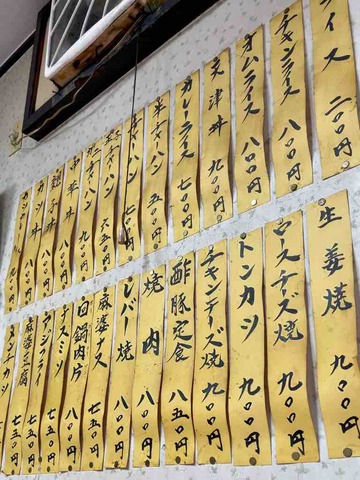 ライス 二〇〇円
チキンライス 八〇〇円
オムライス 八〇〇円
天津丼 九〇〇円
カレーライス 七〇〇円
半チャーハン 五〇〇円
チャーハン 七〇〇円
チャーハン 六五〇円
中華丼 八〇〇円
カツ丼 八〇〇円
生姜焼 九〇〇円
ロースチーズ焼 九〇〇円
トンカツ 九〇〇円
チキンチーズ焼 九〇〇円
酢豚定食 八五〇円
焼肉 八〇〇円
レバー焼 八〇〇円
麻婆ナス 七五〇円
回鍋肉片 八〇〇円
ナスミソ 七五〇円
麻婆豆腐 七五〇円
メンチカツ